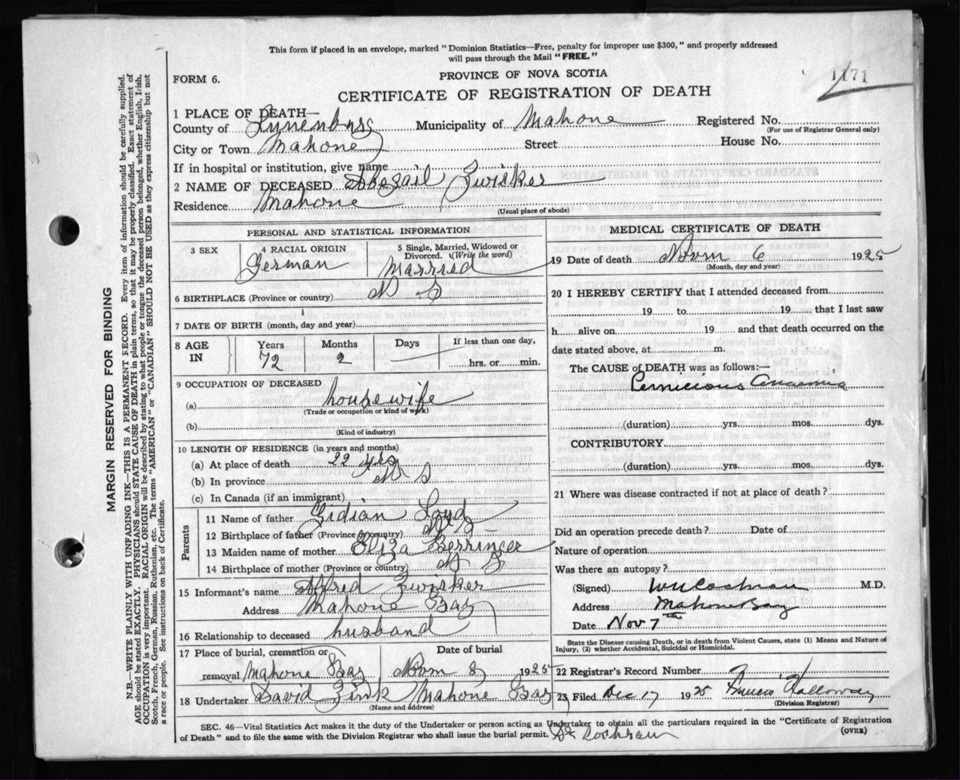 This form if placed in an envelope, marked "Dominion Statistics—Free, penalty for improper use $300," and properly addressed
will pass through the Mail "FREE."
FORM 6.
PROVINCE OF NOVA SCOTIA
1171
CERTIFICATE OF REGISTRATION OF DEATH
1 PLACE OF DEATH—
County of Lunenburg Municipality of Mahone Registered No.
(For use of Registrar General only)
City or Town Mahone Street House No.
If in hospital or institution, give name
2 NAME OF DECEASED Abegail Zwisker
Residence Mahone
(Usual place of abode)
PERSONAL AND STATISTICAL INFORMATION
3 SEX
4 RACIAL ORIGIN
German
5 Single, Married, Widowed or
Divorced. (Write the word)
Married
6 BIRTHPLACE (Province or country) N S
7 DATE OF BIRTH (month, day and year)
8 AGE IN Years Months Days If less than one day,
72 2 hrs. or min.
9 OCCUPATION OF DECEASED
(a) housewife
(Trade or occupation or kind of work)
(b)
(Kind of industry)
10 LENGTH OF RESIDENCE (in years and months)
(a) At place of death 22 yrs
(b) In province N S
(c) In Canada (if an immigrant)
Parents
11 Name of father Gidian
12 Birthplace of father (Province or country) N S
13 Maiden name of mother Eliza Berringer
14 Birthplace of mother (Province or country) N S
15 Informant's name Alfred Zwisker
Address Mahone Bay
16 Relationship to deceased husband
17 Place of burial, cremation or Date of burial
removal Mahone Bay Novm 8 1925
18 Undertaker David Zink Mahone Bay
(Name and address)
MEDICAL CERTIFICATE OF DEATH
19 Date of death Novm 6 1925
(Month, day and year)
20 I HEREBY CERTIFY that I attended deceased from
19 to 19 that I last saw
h alive on 19 and that death occurred on the
date stated above, at m.
The CAUSE OF DEATH was as follows:—
Pernicious Anaemia
(duration) yrs. mos. dys.
CONTRIBUTORY
(duration) yrs. mos. dys.
21 Where was disease contracted if not at place of death?
Did an operation precede death? Date of
Nature of operation
Was there an autopsy?
(Signed) Cochran M.D.
Address Mahone Bay
Date Nov 7th
State the Disease causing Death, or in death from Violent Causes, state (1) Means and Nature of
Injury, (2) whether Accidental, Suicidal or Homicidal.
22 Registrar's Record Number
23 Filed Dec 17 1925 Francis Halloway
(Division Registrar)
SEC. 46—Vital Statistics Act makes it the duty of the Undertaker or person acting as Undertaker to obtain all the particulars required in the "Certificate of Registration
of Death" and to file the same with the Division Registrar who shall issue the burial permit. Dr Cochran (OVER)
MARGIN RESERVED FOR BINDING
N.B.—WRITE PLAINLY WITH UNFADING INK—THIS IS A PERMANENT RECORD. Every item of information should be carefully supplied.
AGE should be stated EXACTLY. PHYSICIANS should STATE CAUSE OF DEATH in plain terms, so that it may be properly classified. Exact statement of
OCCUPATION is very important. RACIAL ORIGIN will be described by stating to what people or tongue the deceased person belonged, whether English, Irish,
Scotch, French, German, Russian, Ruthenian, etc. The terms "AMERICAN" or "CANADIAN" SHOULD NOT BE USED as they express citizenship but not
a race or people. See instructions on back of Certificate.